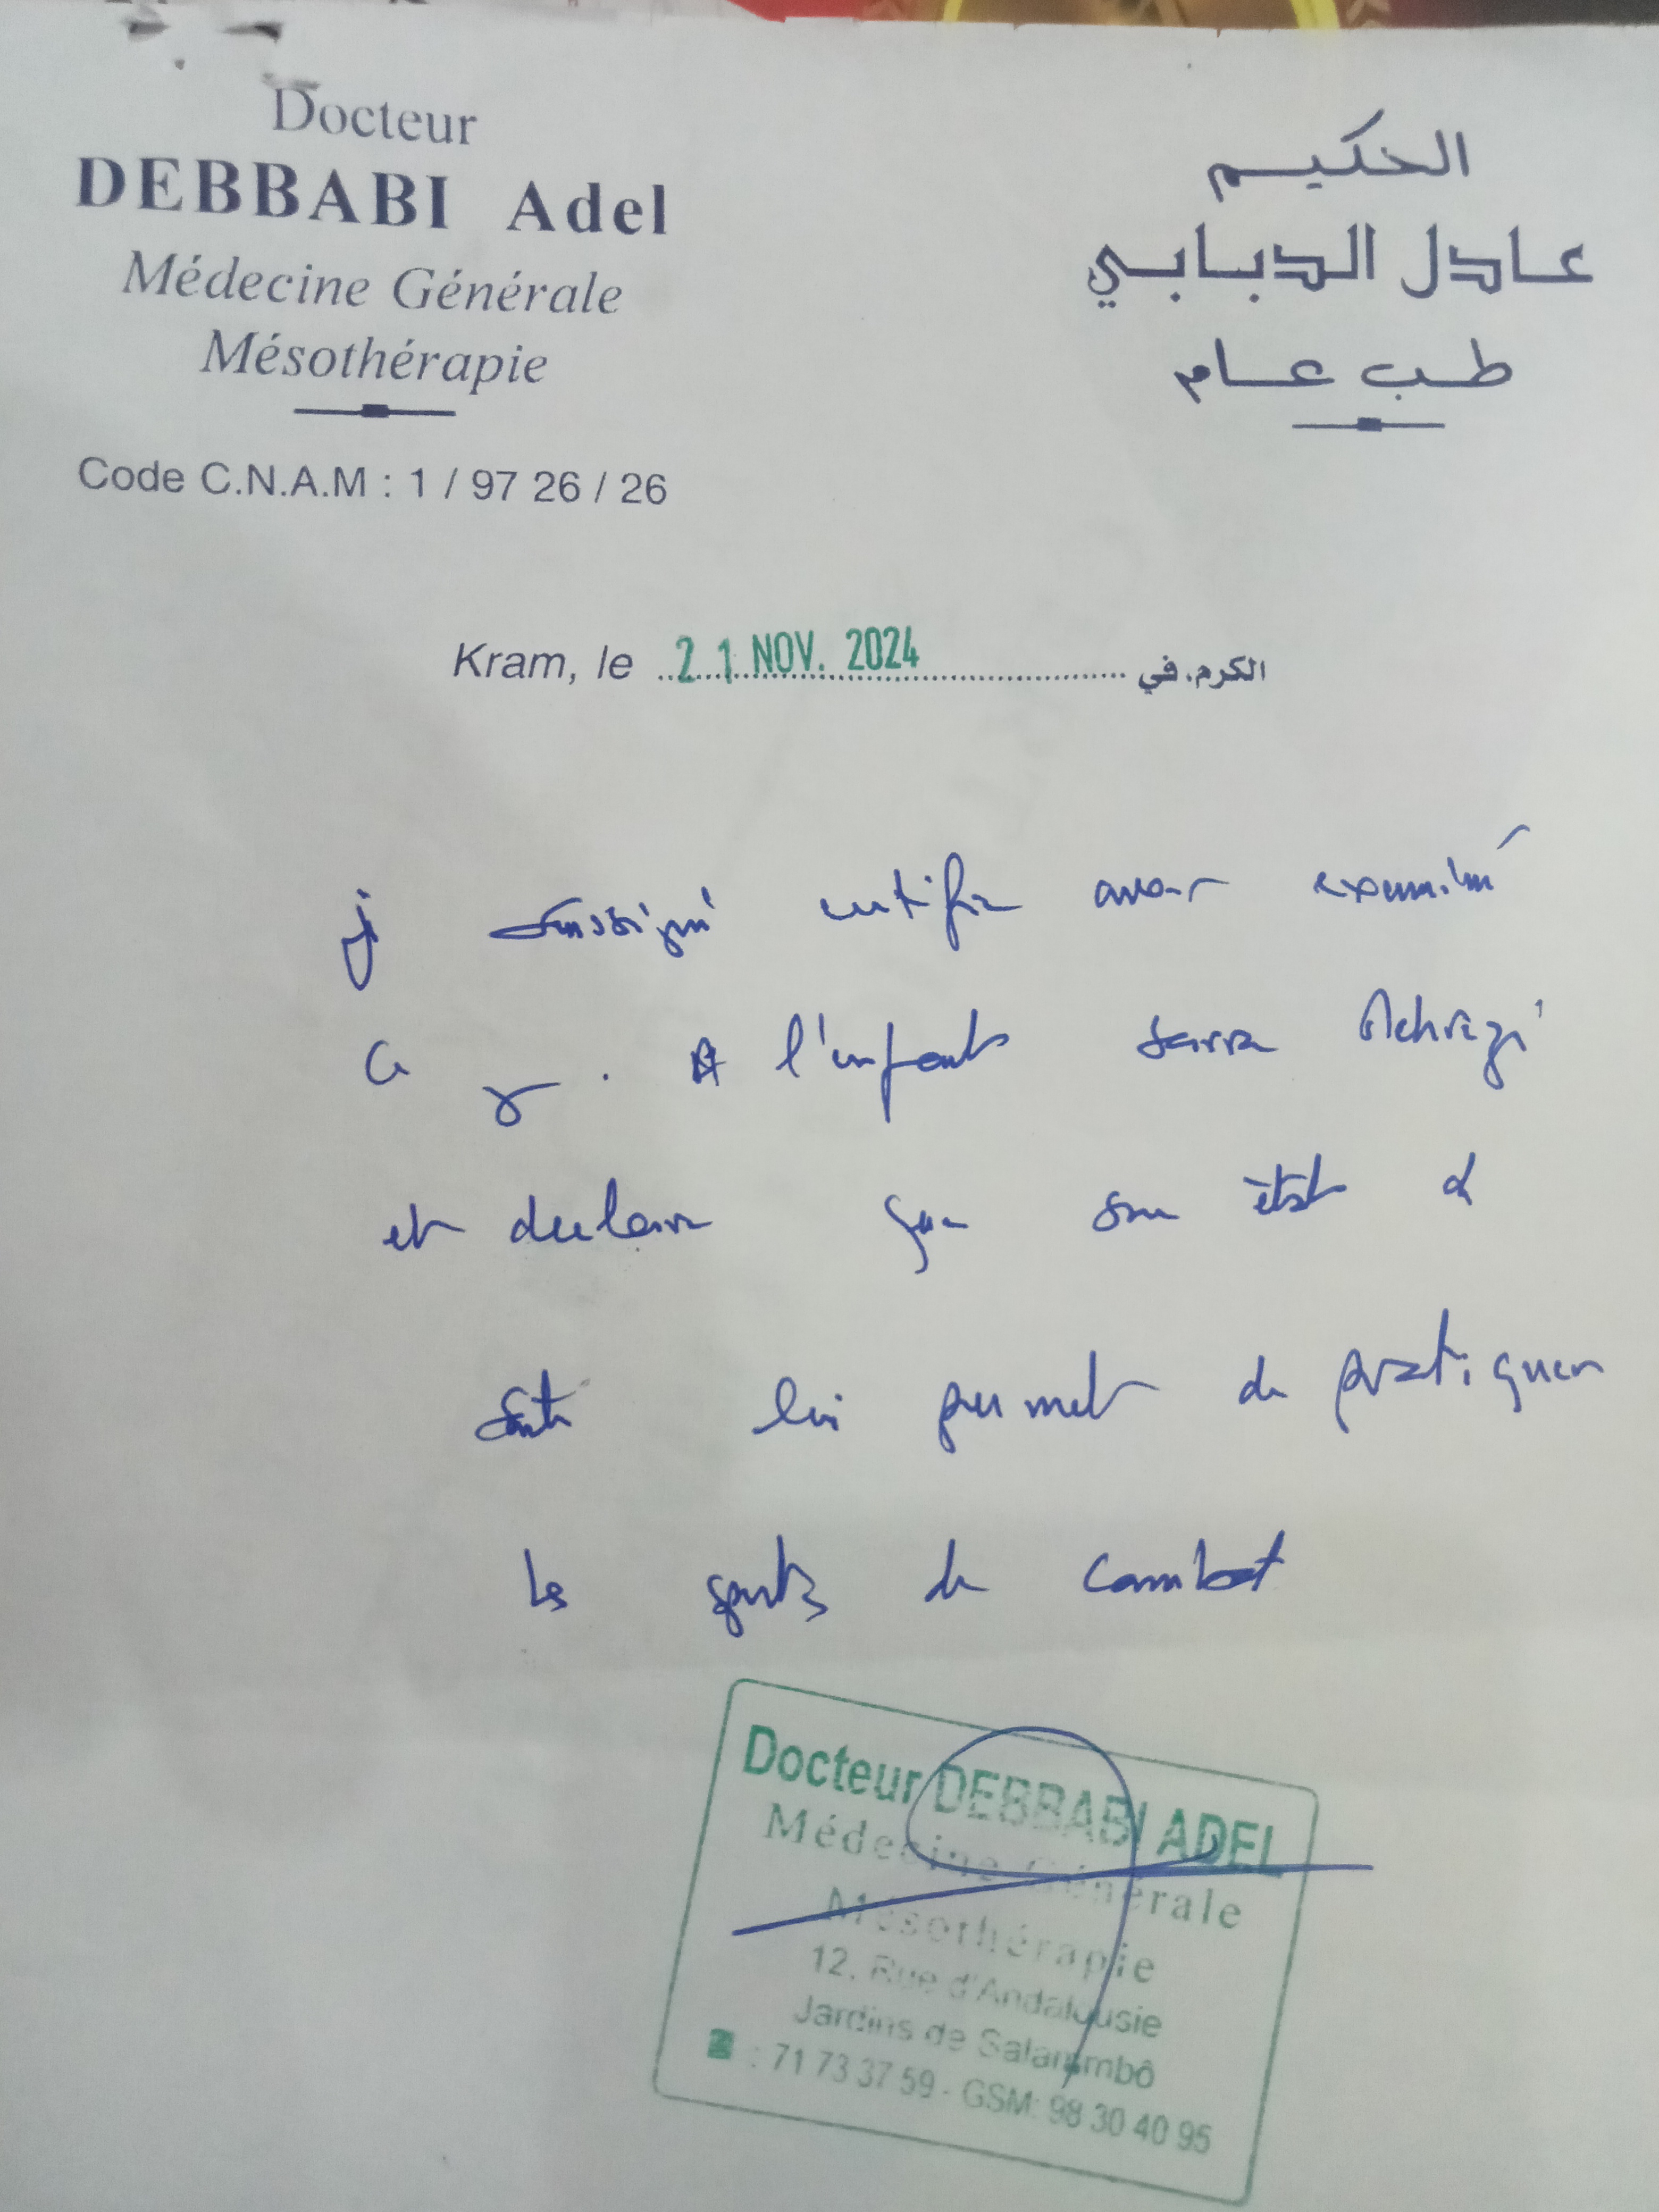 Docteur
DEBBABI Adel
Médecine Générale
Mésothérapie
Code C.N.A.M : 1 / 97 26 / 26
الحكيم
عادل الدبابي
طب عام
Kram, le 21 NOV. 2024 الكرم، في
j soussigné certifie avoir examiné
ce jour. l'enfant Sarra Mehrezi
et declare que son état de
santé lui permet de pratiquer
les sports de combat
Docteur DEBBABI ADEL
Médecine Générale
Mésothérapie
12, Rue d'Andalousie
Jardins de Salammbô
: 71 73 37 59 - GSM: 98 30 40 95